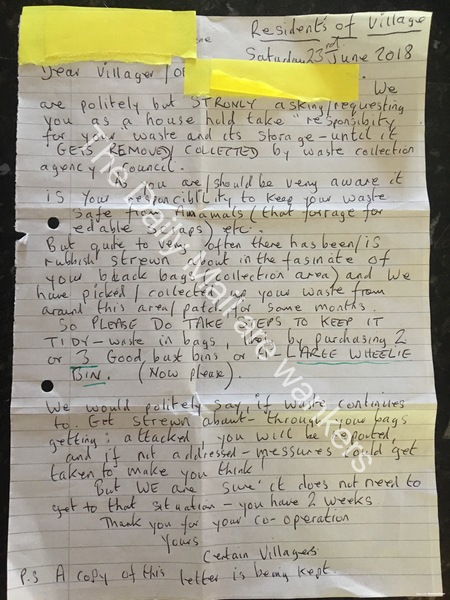 Residents of Village
Saturday 23rd June 2018
Dear Villager / of
We
are politely but STRONLY asking/requesting
you as a house hold take "responsibity
for your waste and its storage - until it
GETS REMOVED/COLLECTED by waste collection
agency / council.
As you are/should be very aware it
is your responsibility to keep your waste
safe from (that forrage for
edable scraps) etc.
But quite to very often there has been/is
rubbish strewn about in the of
your black bags (collection area) and we
have picked / collected up your waste from
around this area/patch for some months.
So PLEASE DO TAKE STEPS TO KEEP IT
TIDY - waste in bags, by purchasing 2
or 3 Good dust bins or a LARGE WHEELIE
BIN. (Now please).
We would politely say, if waste continues
to get strewn about through your bags
getting attacked you will be reported,
and if not addressed - messures could get
taken to make you think!
But WE are sure it does not need to
get to that situation - you have 2 weeks
Thank you for your co-operation
Yours
Certain Villagers
P.S A copy of this letter is being kept.
The Daily Mail are wankers